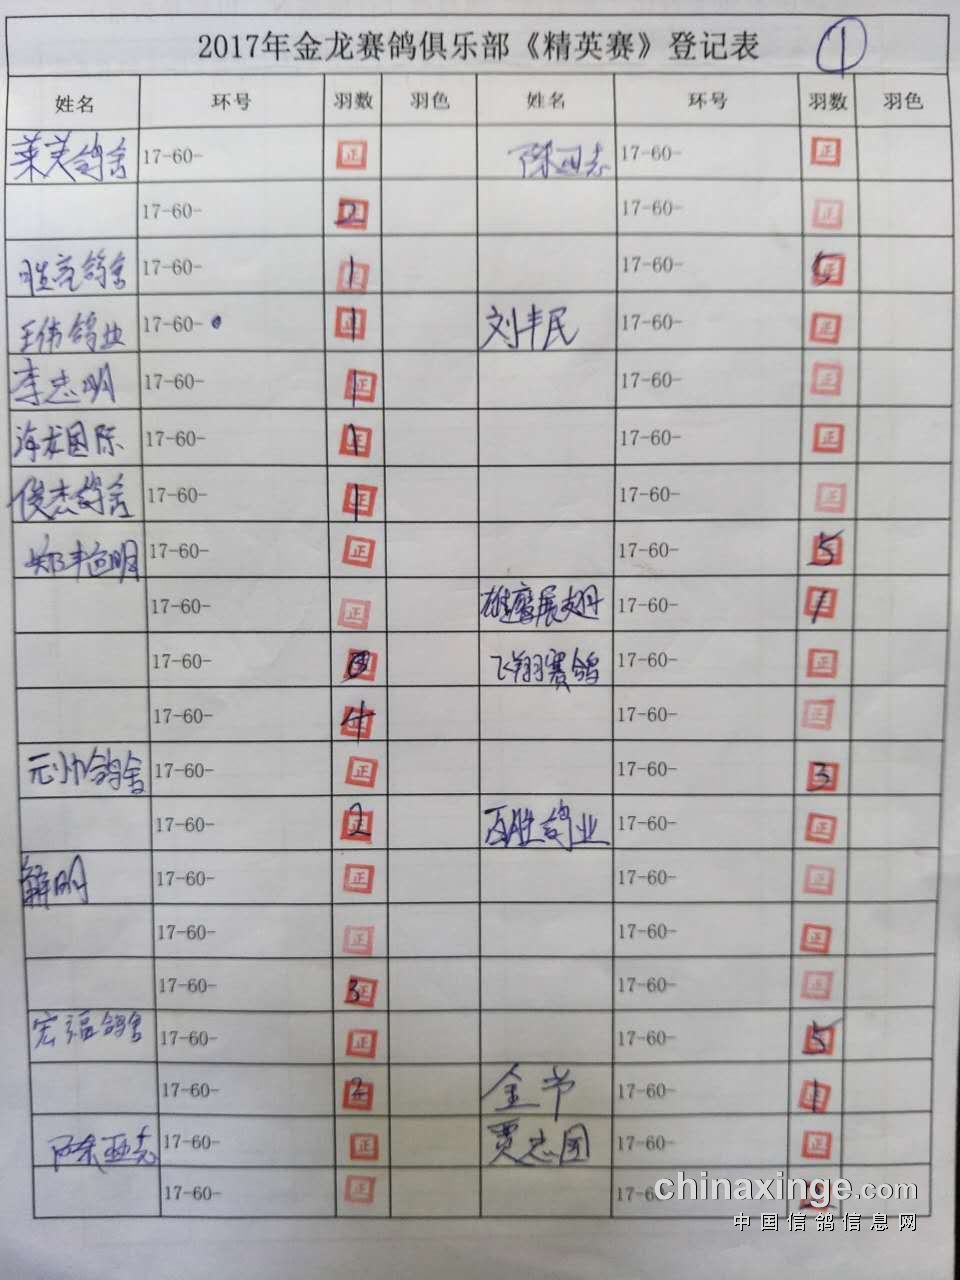 2017年金龙赛鸽俱乐部《精英赛》登记表 ①
姓名 环号 羽数 羽色 姓名 环号 羽数 羽色
莱芙鸽舍 17-60- 正 17-60- 正
17-60- 2 17-60- 正
胜亮鸽舍 17-60- 1 17-60- 5
王伟鸽业 17-60- 1 刘丰民 17-60- 正
李志明 17-60- 1 17-60- 正
海龙国际 17-60- 1 17-60- 正
俊杰鸽舍 17-60- 1 17-60- 正
17-60- 正 17-60- 5
17-60- 正 雄鹰展翅 17-60- 1
17-60- 飞翔赛鸽 17-60- 正
17-60- 4 17-60- 正
元帅鸽舍 17-60- 正 17-60- 3
17-60- 2 百胜鸽业 17-60- 正
解明 17-60- 正 17-60- 正
17-60- 正 17-60- 正
17-60- 3 17-60- 正
宏福鸽舍 17-60- 正 17-60- 5
17-60- 2 金爷 17-60- 1
陈亚志 17-60- 正 贾志国 17-60- 正
17-60- 正 17-60-
chinaxinge.com
中国信鸽信息网